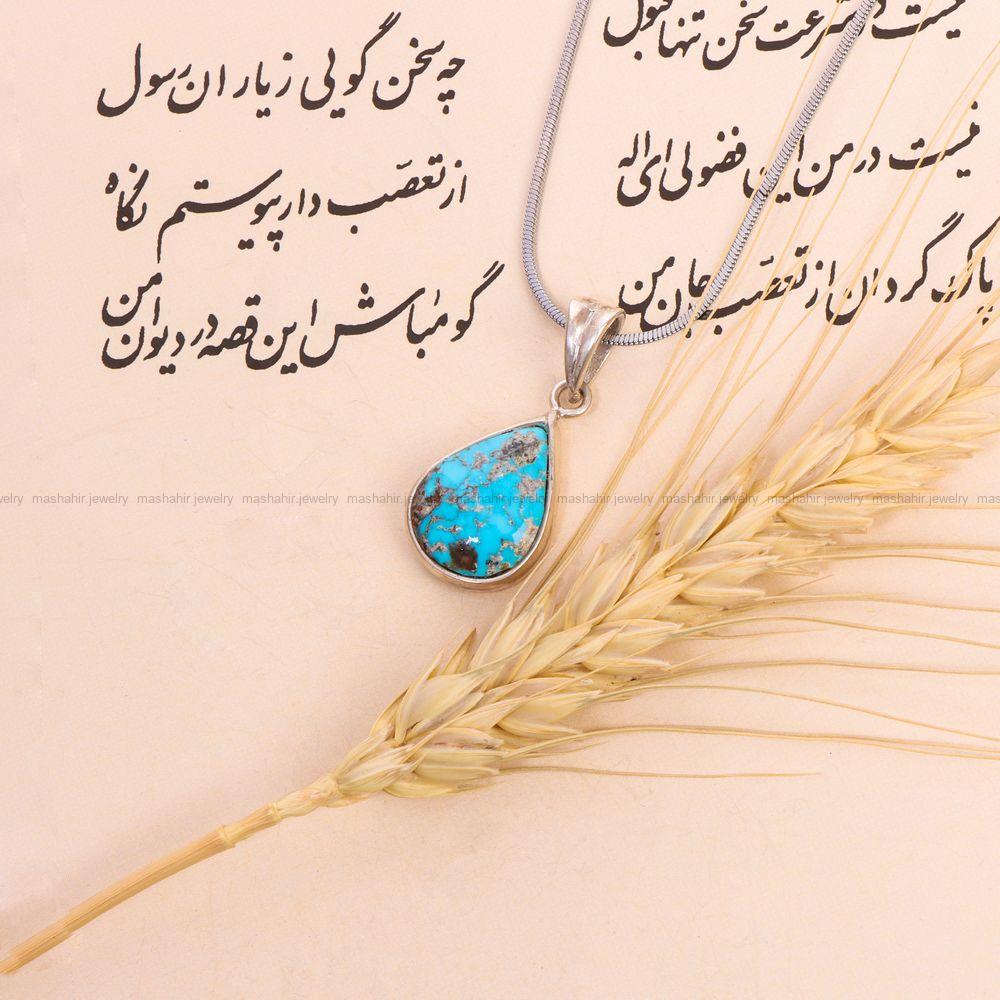 نیست در شرعت سخن تنها قبول
چه سخن گویی ز یاران رسول
نیست در من این فضولی ای اله
از تعصب دار پیوستم نگاه
پاک گردان از تعصب جان من
گو مباش این قصه در دیوان من
mashahir.jewelry mashahir.jewelry mashahir.jewelry mashahir.jewelry mashahir.jewelry mashahir.jewelry mashahir.jewelry mashahir.jewelry mashahir.jewelry